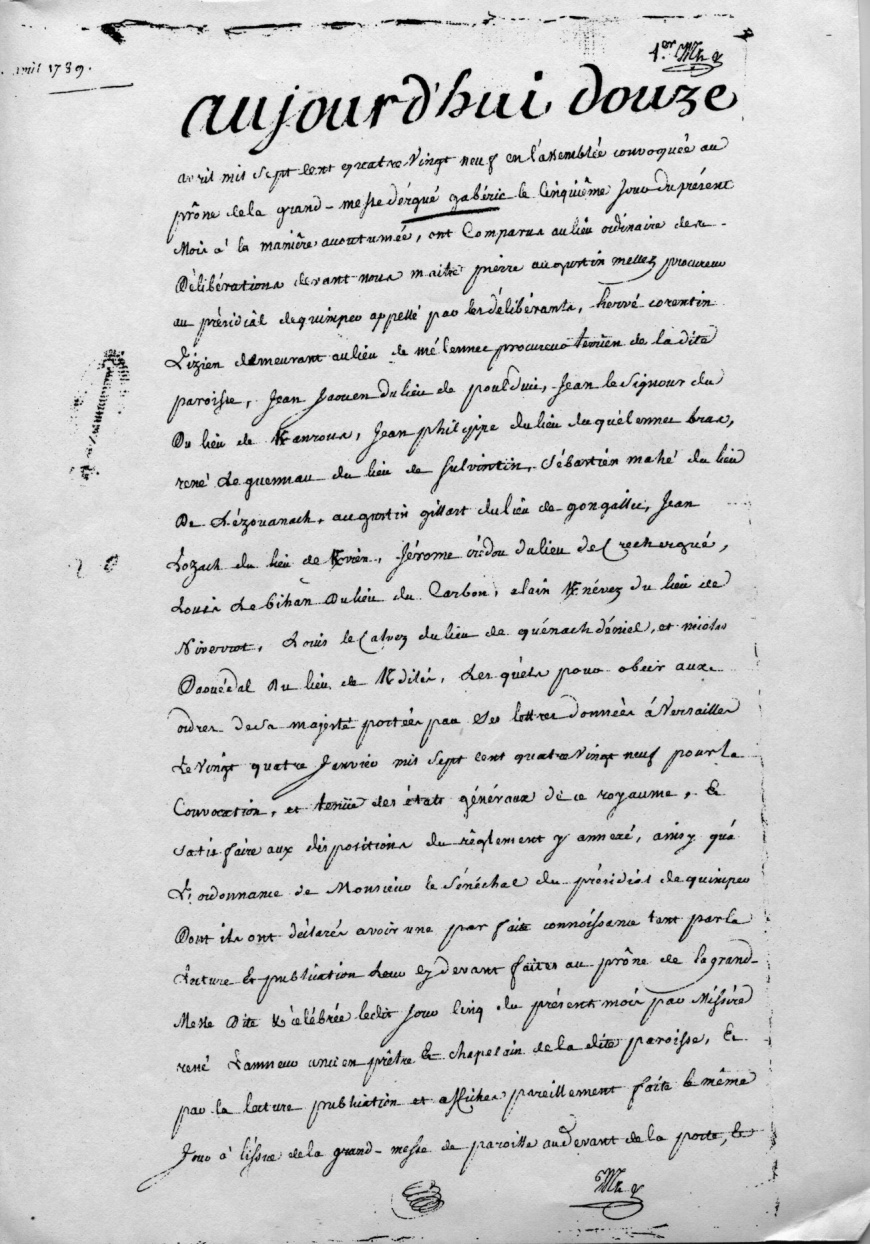 avril 1789.
1.er
aujourd'hui douze
avril mil sept cent quatre vingt neuf en l'assemblée convoquée au
prône de la grand-messe d'érgué gabéric le cinquième jour du présent
mois à la manière accoutumée, ont comparus au lieu ordinaire des
Délibérations devant nous maitre pierre augustin mellez procureur
au présidial de quimper appellé par les délibérants, hervé corentin
Lizien demeurant au lieu de mélennec procureur terrien de la dite
paroisse, Jean Jaouen du lieu de poulduic, Jean le Signour du
Du lieu de Kanroux, Jean philippe du lieu du quélennec bras,
rené Le guennau du lieu de sulvintin, Sébastien mahé du lieu
De Lézouanach, augustin gillart du lieu de gongallic, Jean
Lozach du lieu de Kvrén, Jérome crédou du lieu de Crecherqué,
Louis Le bihan Du lieu du Carbon, alain Knévez du lieu de
Niverrot, Louis le Calvez du lieu de quénach déniel, et nicolas
Daouédal Du lieu de Kdilés, Les quels pour obeir aux
ordres de sa majesté portées par ses lettres données à Versailles
Le Vingt quatre Janvier mil sept cent quatre Vingt neuf pour la
Convocation, et tenüe des états généraux de ce royaume, &
satisfaire aux dispositions du réglement y annexé, ainsy qu'à
L'ordonnance de Monsieur le Sénéchal du présidial de quimper
Dont ils ont déclarés avoir une parfaite connoissance tant par la
Lecture & publication leur cy devant faites au prône de la grand-
Messe Dite & célébrée ledit Jour cinq du présent mois par Missire
rené Lamneur ancien prêtre & chapelain de la dite paroisse, &
par la lecture publication et affiches pareillement faite le même
Jour à l'issüe de la grand-messe de paroisse au devant de la porte, le